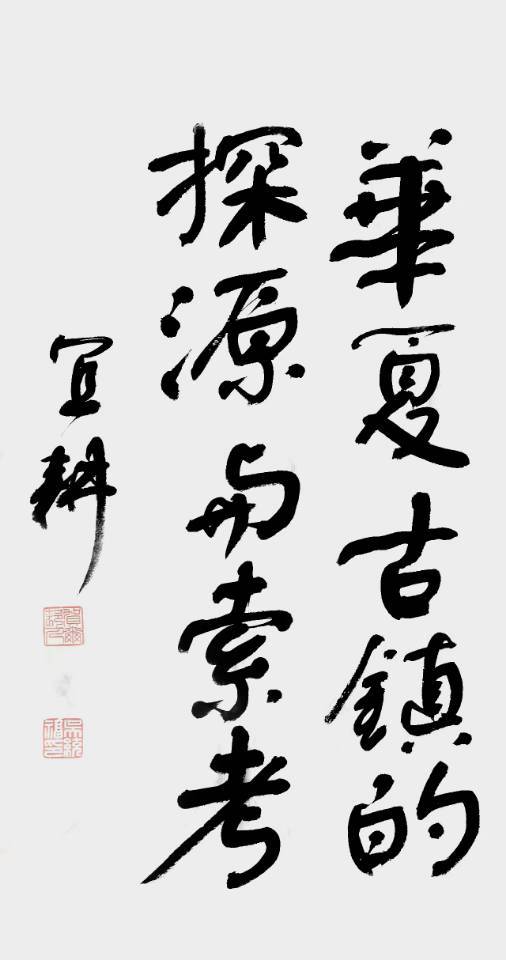 華夏古鎮的
探源与索考
宜耕